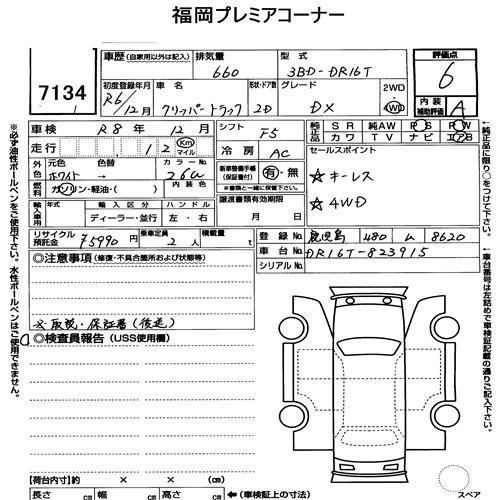 福岡プレミアコーナー
7134
車歴 (自家用以外は記入)
排気量
660
型式
3BD-DR16T
評価点
6
内装補助評価
A
初度登録年月
R6/12月
車名
クリッパートラック
形状・ドア数
2D
グレード
DX
2WD
4WD
車検 R8年12月
シフト
F5
純正品 SR 純AW PS PW
純正品 カワ TV ナビ エアB
走行
12 Km マイル
冷房
AC
セールスポイント
☆キーレス
☆4WD
外色
元色 色替 カラーNo.
ホワイト → 26U
新車整備手帳(保証書付) 有・無
※書類と一緒に保管して下さい。
燃料
ガソリン・軽油・( )
内装色
輸入車用
年式 輸入区分 ハンドル
ディーラー・並行 左・右
譲渡書類有効期限
月 日
リサイクル預託金
75990円
乗車定員
2人
積載量
t
登録No.
鹿児島 480 ム 8620
車台No.
DR16T-823915
シリアルNo.
◎注意事項 (修復・不具合箇所および状態等)
※取説・保証書(後送)
◎検査員報告 (USS使用欄)
【荷台内寸】約 × ×
長さ cm 幅 cm 高さ cm
←(車検証上の寸法)
スペア
※必ず油性ボールペンをご使用下さい。水性ボールペンはご使用できません。
←純正品に限り○をつけて下さい。
←車台番号は左詰めで車検証記載の通りご記入下さい。